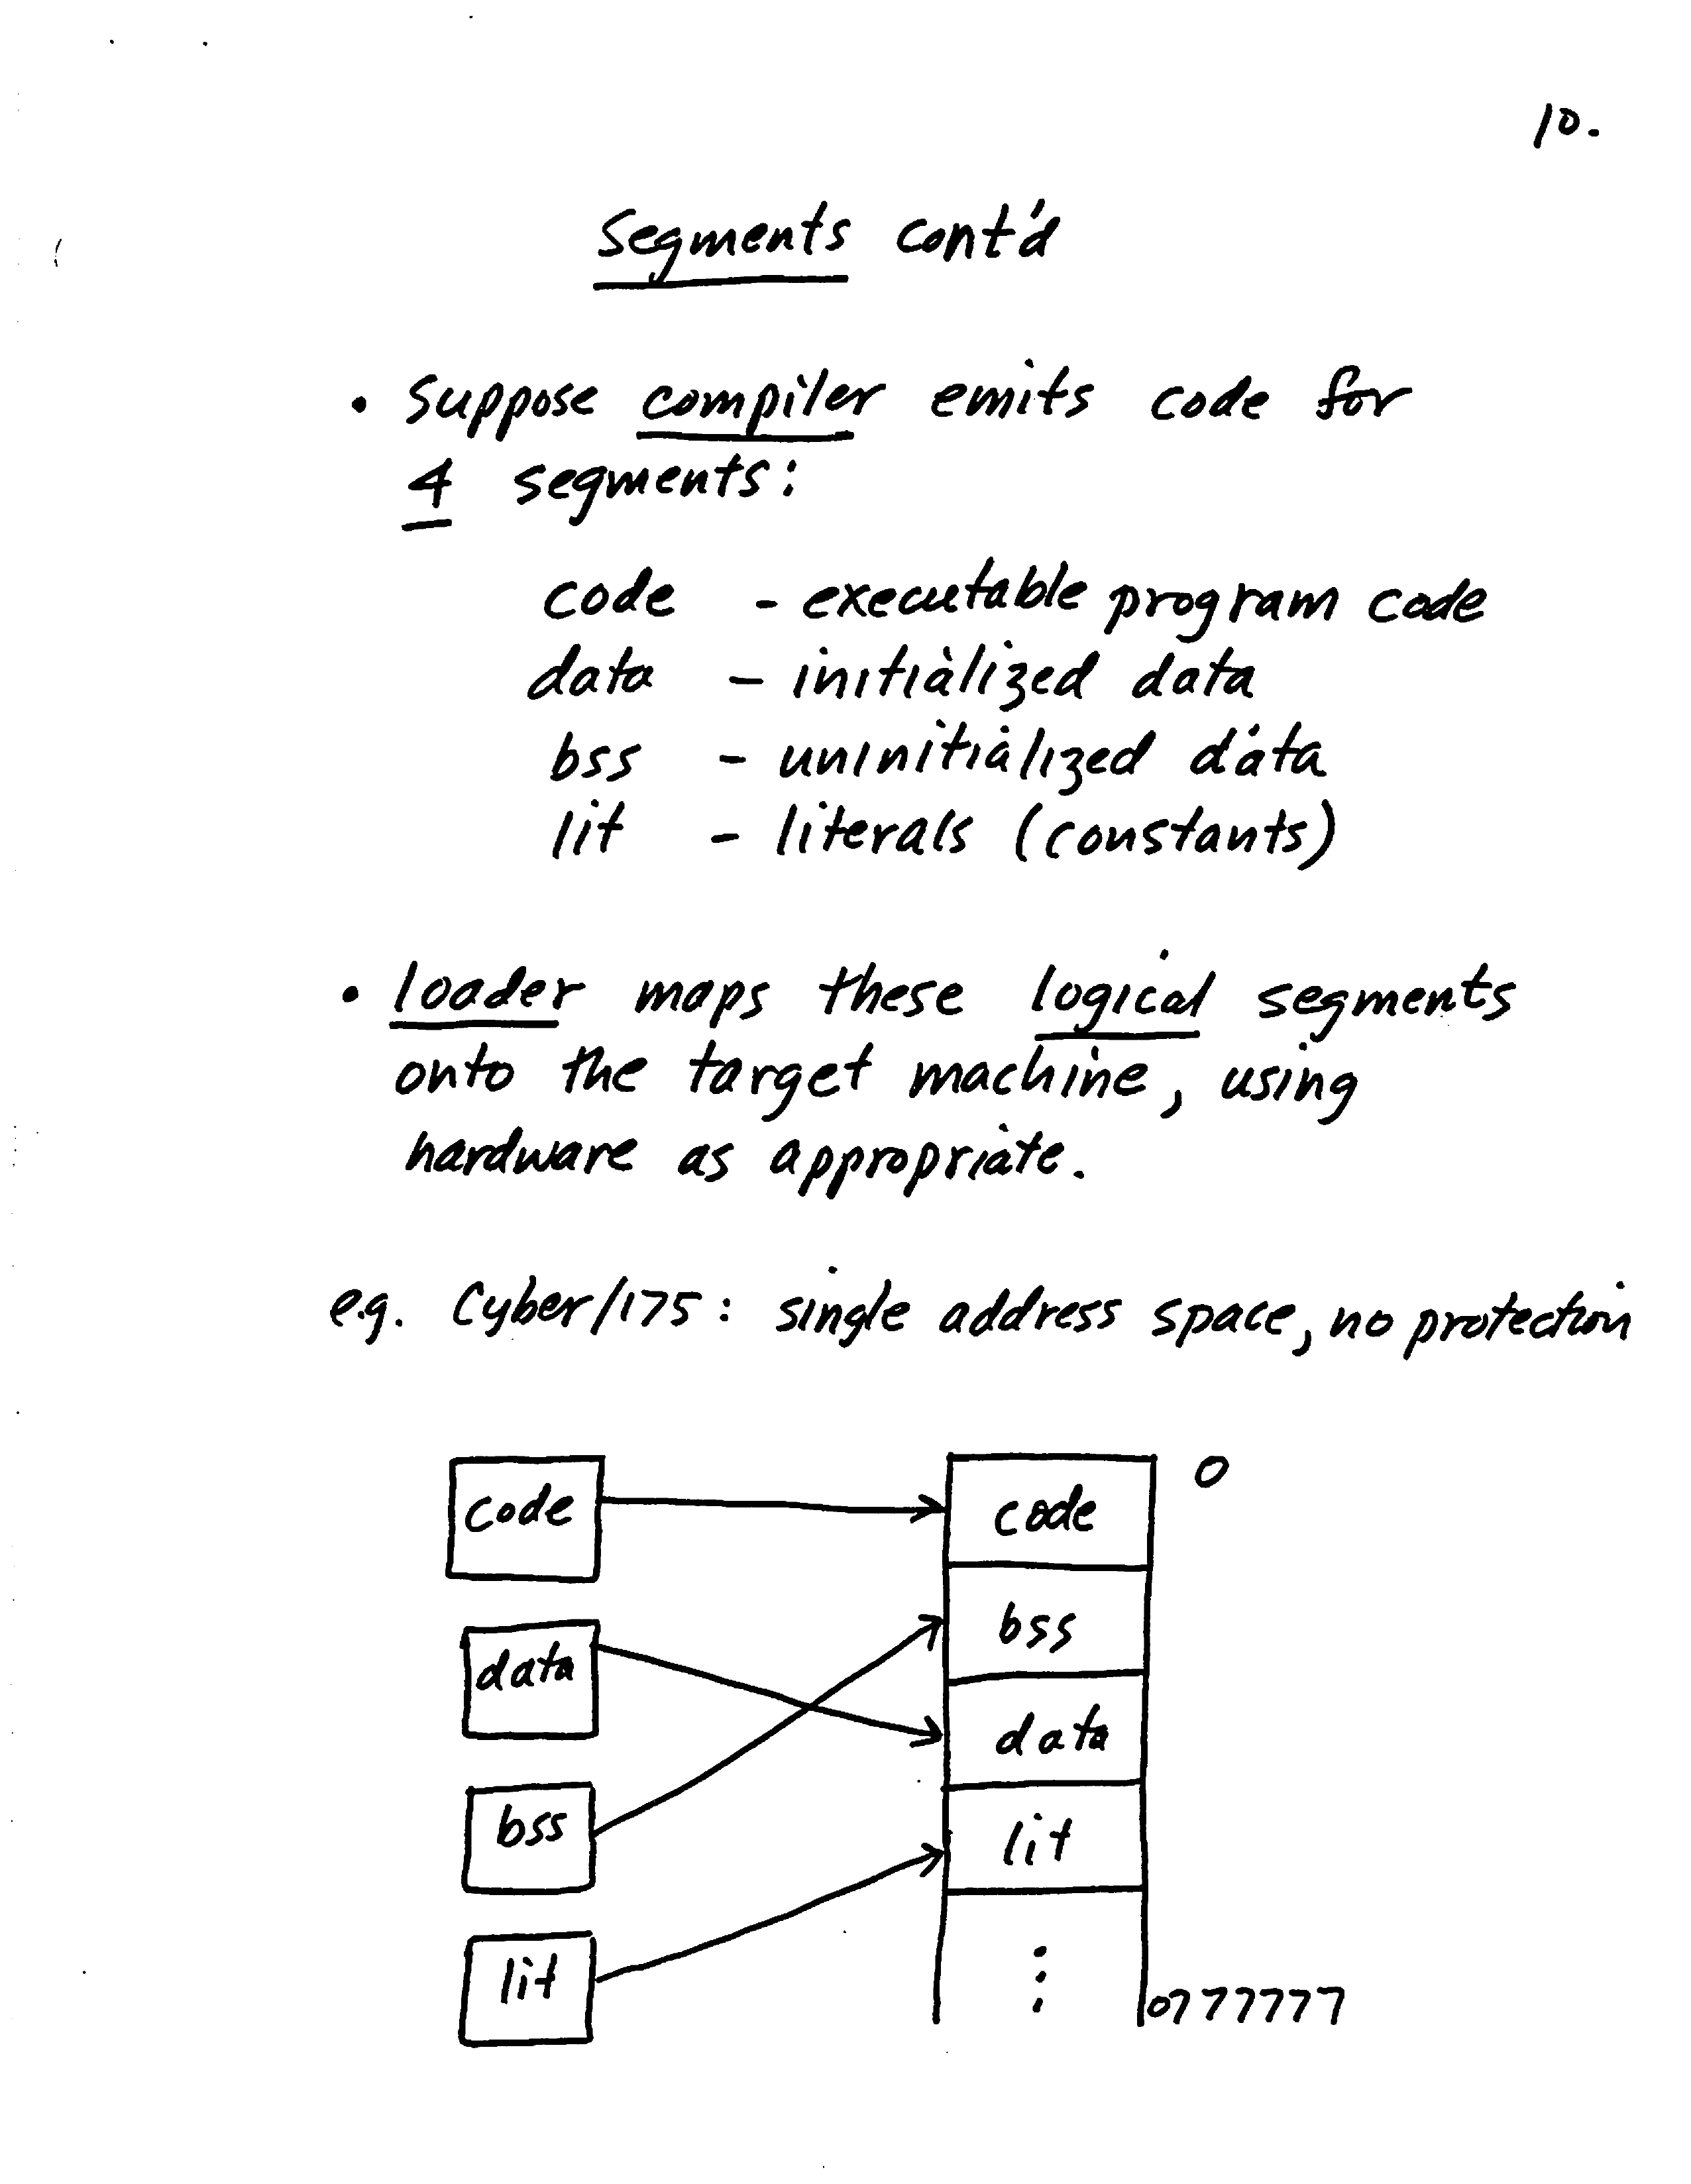 10.
Segments cont'd
• suppose compiler emits code for
4 segments:
code - executable program code
data - initialized data
bss - uninitialized data
lit - literals (constants)
• loader maps these logical segments
onto the target machine, using
hardware as appropriate.
e.g. Cyber/175: single address space, no protection
code
data
bss
lit
code
bss
data
lit
⋮
0
0777777